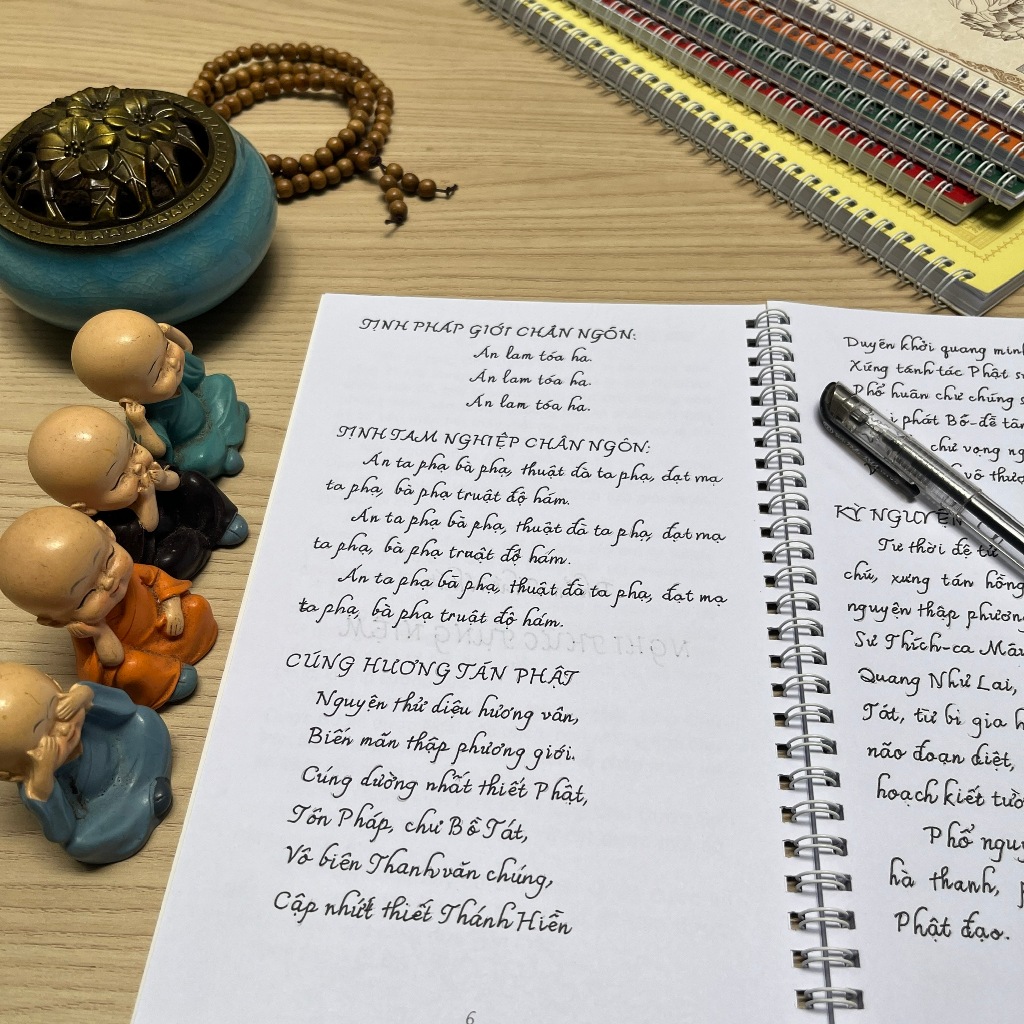 TỊNH PHÁP GIỚI CHÂN NGÔN:
Án lam tóa ha.
Án lam tóa ha.
Án lam tóa ha.
TỊNH TAM NGHIỆP CHÂN NGÔN:
Án ta phạ bà phạ, thuật đà ta phạ, đạt mạ
ta phạ, bà phạ truật độ hám.
Án ta phạ bà phạ, thuật đà ta phạ, đạt mạ
ta phạ, bà phạ truật độ hám.
Án ta phạ bà phạ, thuật đà ta phạ, đạt mạ
ta phạ, bà phạ truật độ hám.
CÚNG HƯƠNG TÁN PHẬT
Nguyện thử diệu hương vân,
Biến mãn thập phương giới.
Cúng dường nhất thiết Phật,
Tôn Pháp, chư Bồ Tát,
Vô biên Thanh văn chúng,
Cập nhứt thiết Thánh Hiền
6
Duyên khởi quang minh
Xứng tánh tác Phật
Phổ huân chư chúng
phát Bồ-đề
chư vọng
vô
KỲ NGUYỆN
Tư thời đệ tử
chú, xưng tán hồng
nguyện thập phương
Sư Thích-ca Mâu
Quang Như Lai,
Tát, từ bi gia
não đoạn diệt,
hoạch kiết
Phổ
hà thanh,
Phật đạo.